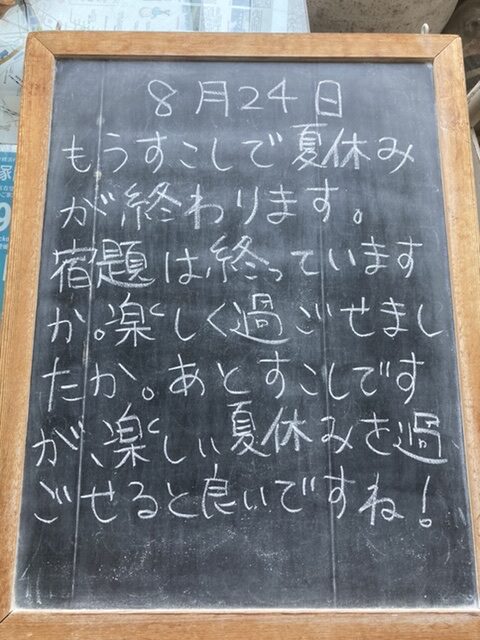 8月24日
もうすこしで夏休み
が終わります。
宿題は、終っています
か。楽しく過ごせまし
たか。あとすこしです
が、楽しい夏休みを過
ごせると良いですね!